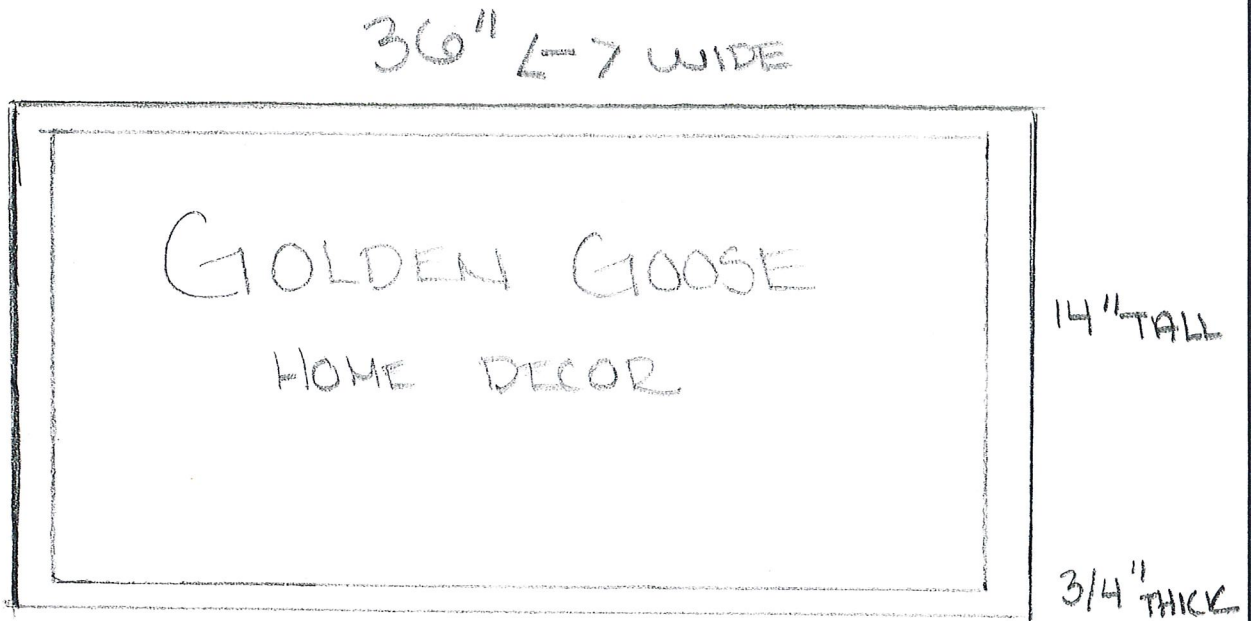 36" <-> WIDE
GOLDEN GOOSE
HOME DECOR
14" TALL
3/4" THICK